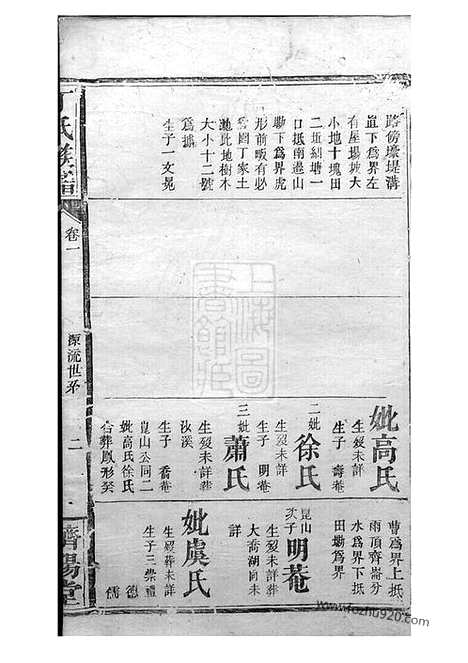 丁氏族譜
卷一
源流世系
二
濟陽堂
路傍壕堤溝
直下爲界左
有屋場坡大
小地十塊田
二坵糾塘一
口抵南邊山
塝下爲界虎
形前畈有必
魯園丁家土
地此地樹木
大小十二號
爲據
生子一 文晃
妣高氏
生歿未詳
生子 壽菴
二妣徐氏
生歿未詳
生子 明菴
三妣蕭氏
生歿未詳葬
汝溪
生子 喬菴
崑山公同二
妣高氏徐氏
合葬鳳形癸
曹爲界上抵
雨頂齊崙分
水爲界下抵
田塝爲界
崑山次子明菴
生歿未詳葬
大喬湖向未
詳
妣虞氏
生歿葬未詳
生子三 崇禮
德
儒
上海圖書館藏
www.fozhu920.com